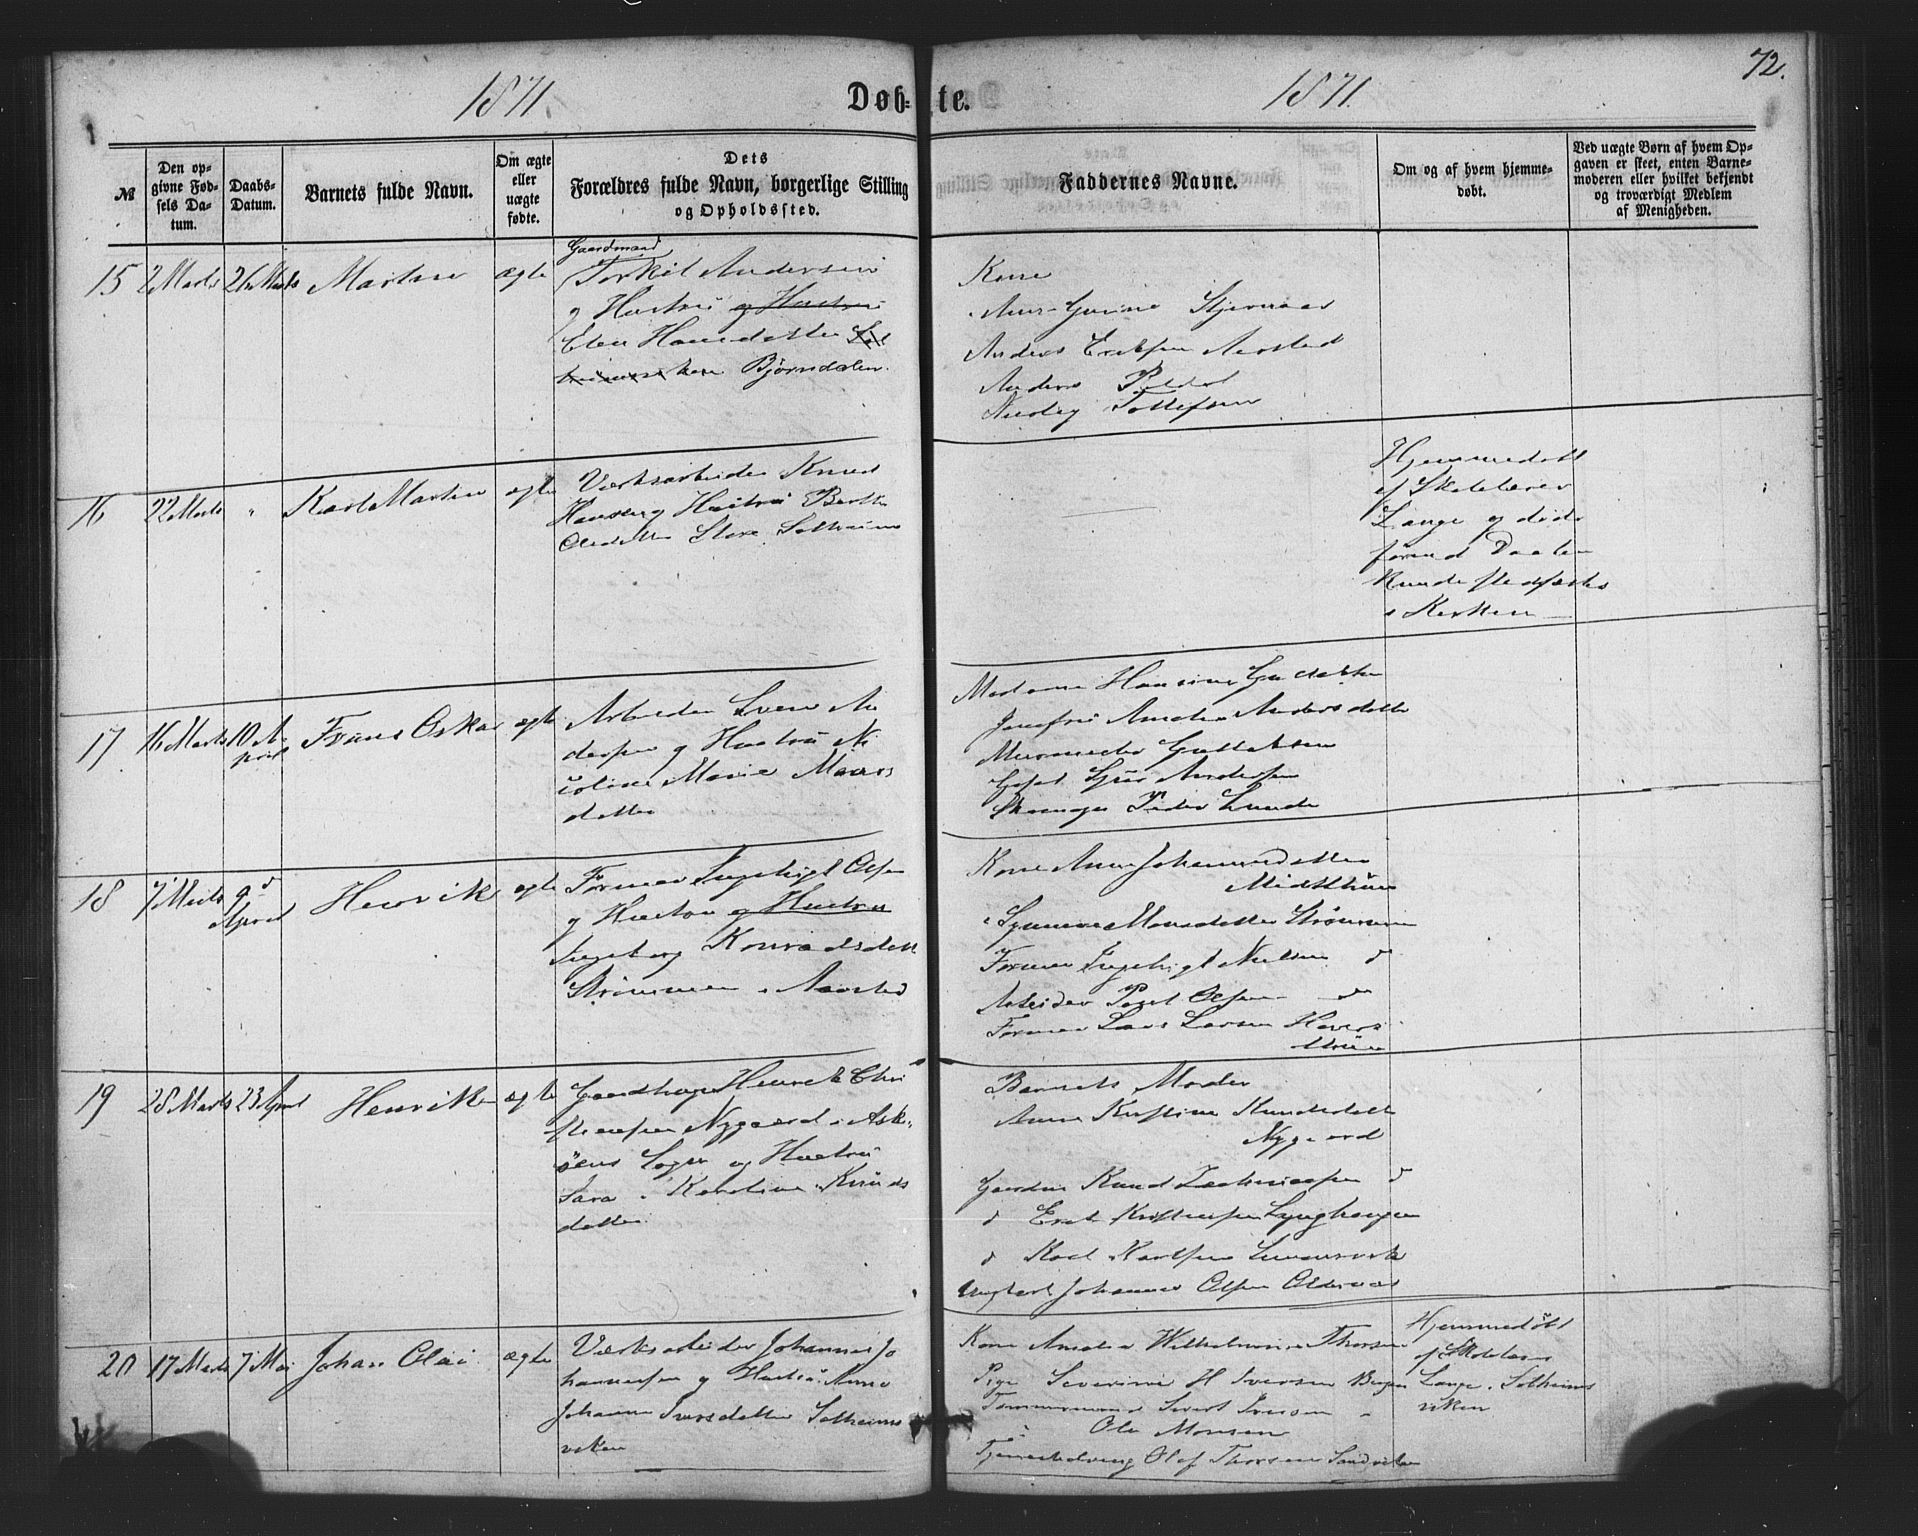 1871.
Døb-
te.
1871.
72.
№
Den op-
givne Fød-
sels Da-
tum.
Daabs-
Datum.
Barnets fulde Navn.
Om ægte
eller
uægte
fødte.
Dets
Forældres fulde Navn, borgerlige Stilling
og Opholdssted.
Faddernes Navne.
Om og af hvem hjemme-
døbt.
Ved uægte Børn af hvem Op-
gaven er skeet, enten Barne-
moderen eller hvilket bekjendt
og troværdigt Medlem
af Menigheden.
15 2 Marts 26 Marts Martin ægte
Gaardmand
Torkil Andersen
og Hustru og Hustru
Elen Hansdatter
Bjørndalen.
Kone
Anders Eriksen Aarstad
Anders
Tollefsen
16 22 Marts " Karl Martin ægte
Værksarbeider Knud
Hansen og Hustru Berthe
Olsdatter Store Solheim
Hjemmedøbt
af Skolelærer
Lange og døde
førend Daaben
Kunde stadfæstes
i Kirken
17 16 Marts 10 A-
pril
Frans Oskar ægte
Arbeider Sven An
dersen og Hustru Ni
coline Marie Mons
datter
Madame Hansine
Jomfru Amalia Andersdatter
Muurmester
Andersen
Skomager Peder Lunde
18 7 Marts 9 d
April
Henrik ægte
Former Ingebrigt Olsen
og Hustru og Hustru
Ingeborg Konradsdatt
Strømmen i Aarstad
Kone Anna Johannesdatter
Midtthun
Synneve Monsdatter Strømmen
Former Ingebrigt Nielsen d
Arbeider Poul Olsen do
Former Lars Larsen
19 28 Marts 23 April Henrik ægte
Gaardbruger Henrik Chri
stensen Nygaard i Ask-
øens Sogn og Hustru
Sara Karoline Knuds
datter
Barnets Moder
Anna Kristine Knudsdatter
Nygaard
Gaardm Knud Zachariasen d
d Erik Kristensen Lynghaugen
d Karl Karlsen
Ungkarl Johannes Olsen
20 17 Marts 7 Mai Johan Olai ægte
Værksarbeider Johannes Jo
hannessen og Hustru Anna
Johanne Iversdatter Solheims
viken
Kone Amalia Wilhelmine Thorsen
Pige Severine H Iversen Bergen
Tømmermand Sivert Iversen
Ole Monsen
Olaf Thorsen Sandviken
Hjemmedøbt
af Skolelærer
Lange, Solheims
viken